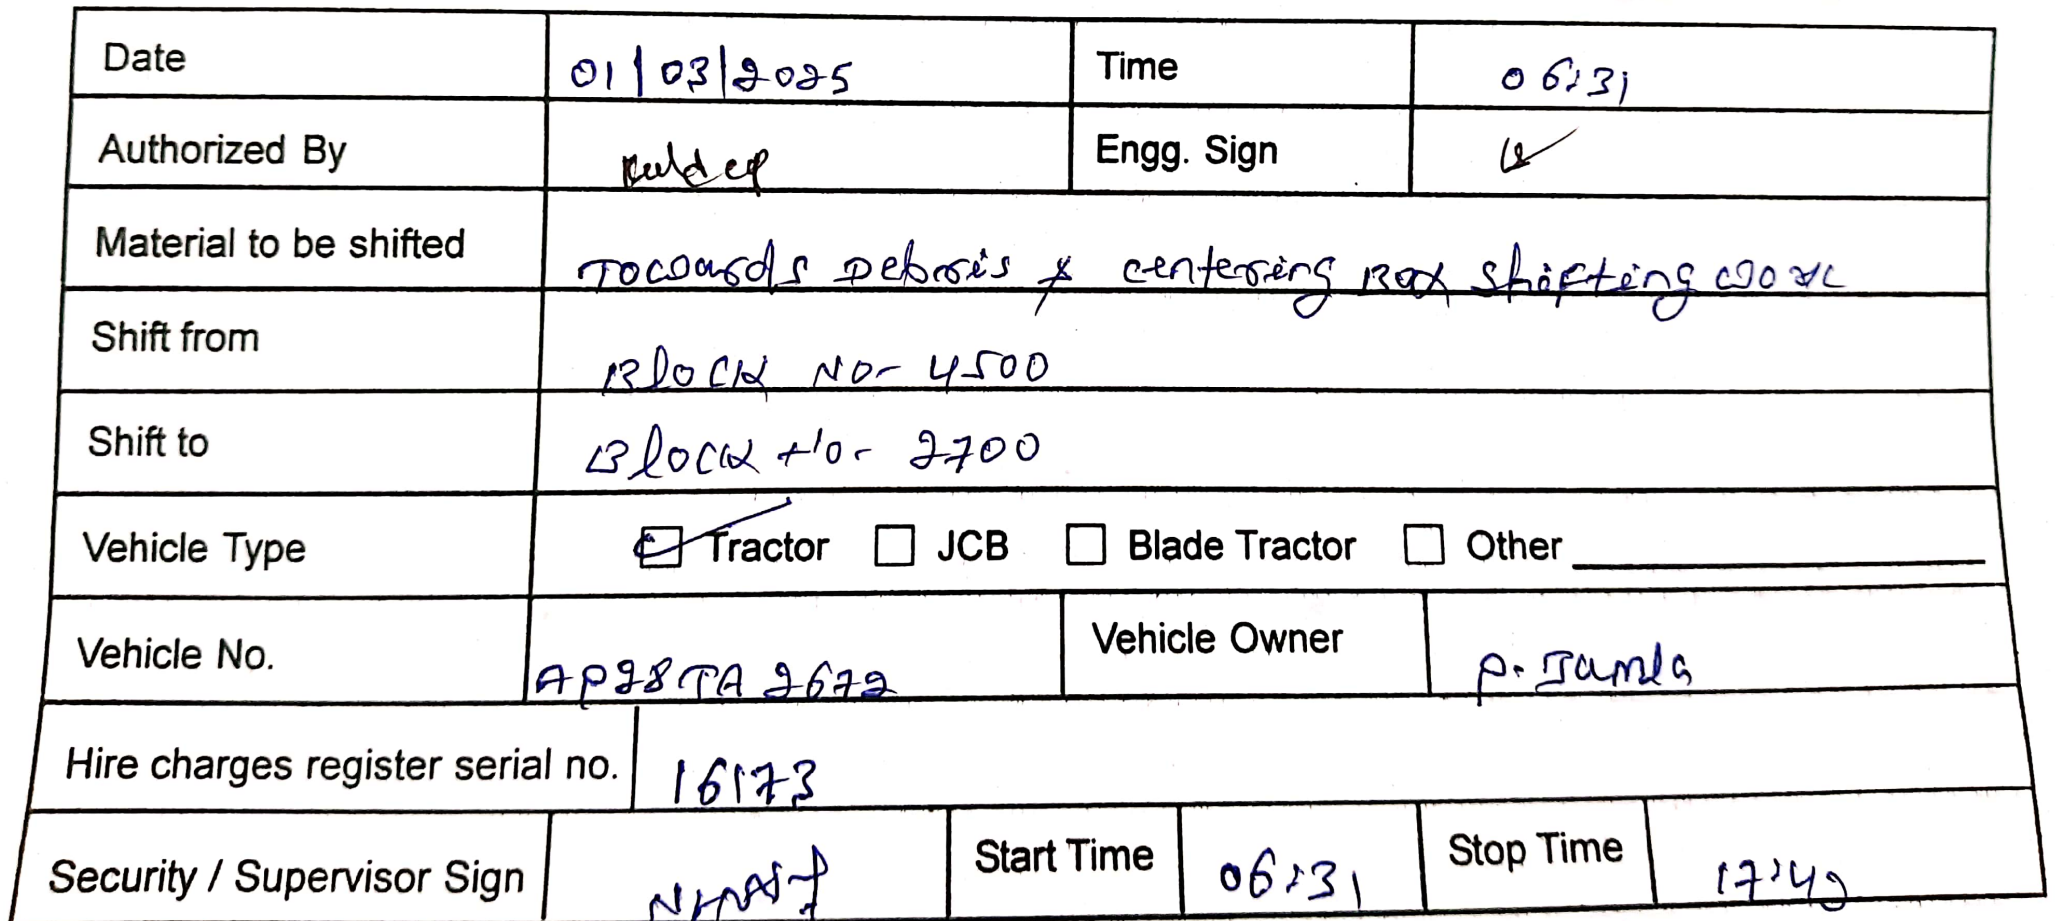 Date 01/03/2025 Time 06:31
Authorized By Kuldep Engg. Sign
Material to be shifted Towards Debris & centering Box Shifting work
Shift from Block No- 4500
Shift to Block No- 2700
Vehicle Type Tractor JCB Blade Tractor Other
Vehicle No. AP28TA 2672 Vehicle Owner P. Jamla
Hire charges register serial no. 16173
Security / Supervisor Sign Start Time 06:31 Stop Time 17:42